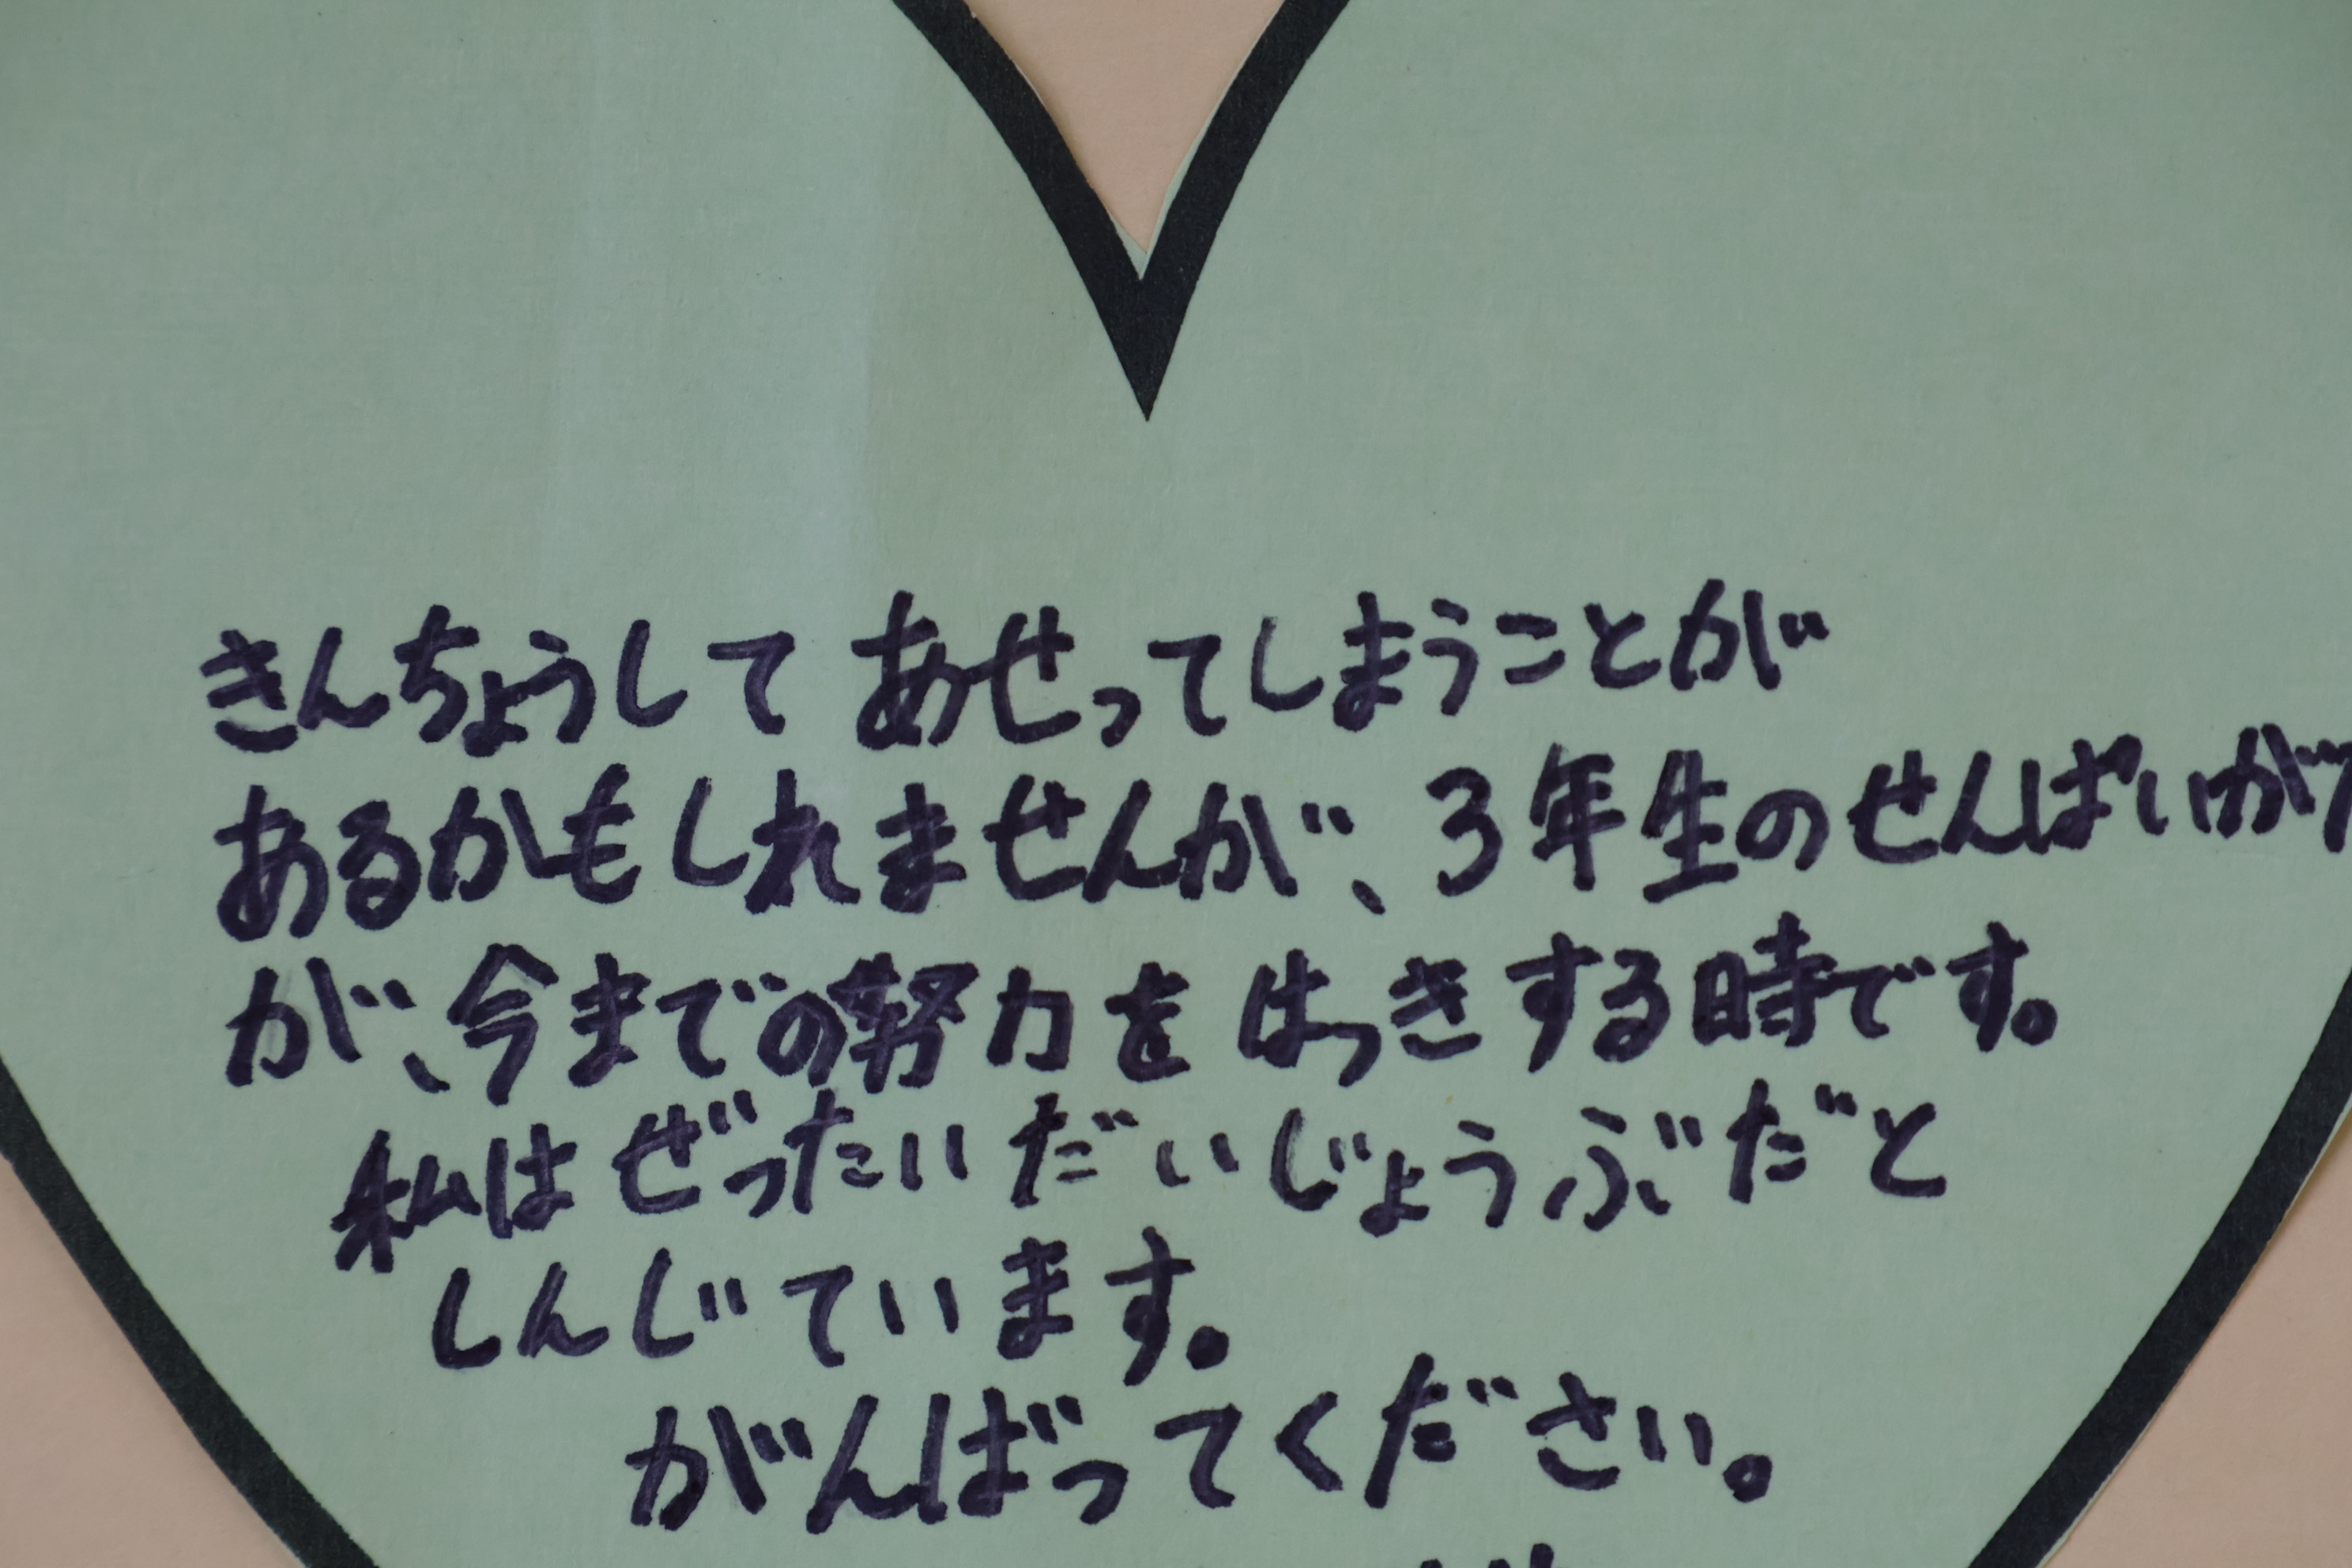 きんちょうして あせってしまうことが
あるかもしれませんが、3年生のせんぱいがた
が、今までの努力をはっきする時です。
私はぜったいだいじょうぶだと
しんじています。
がんばってください。